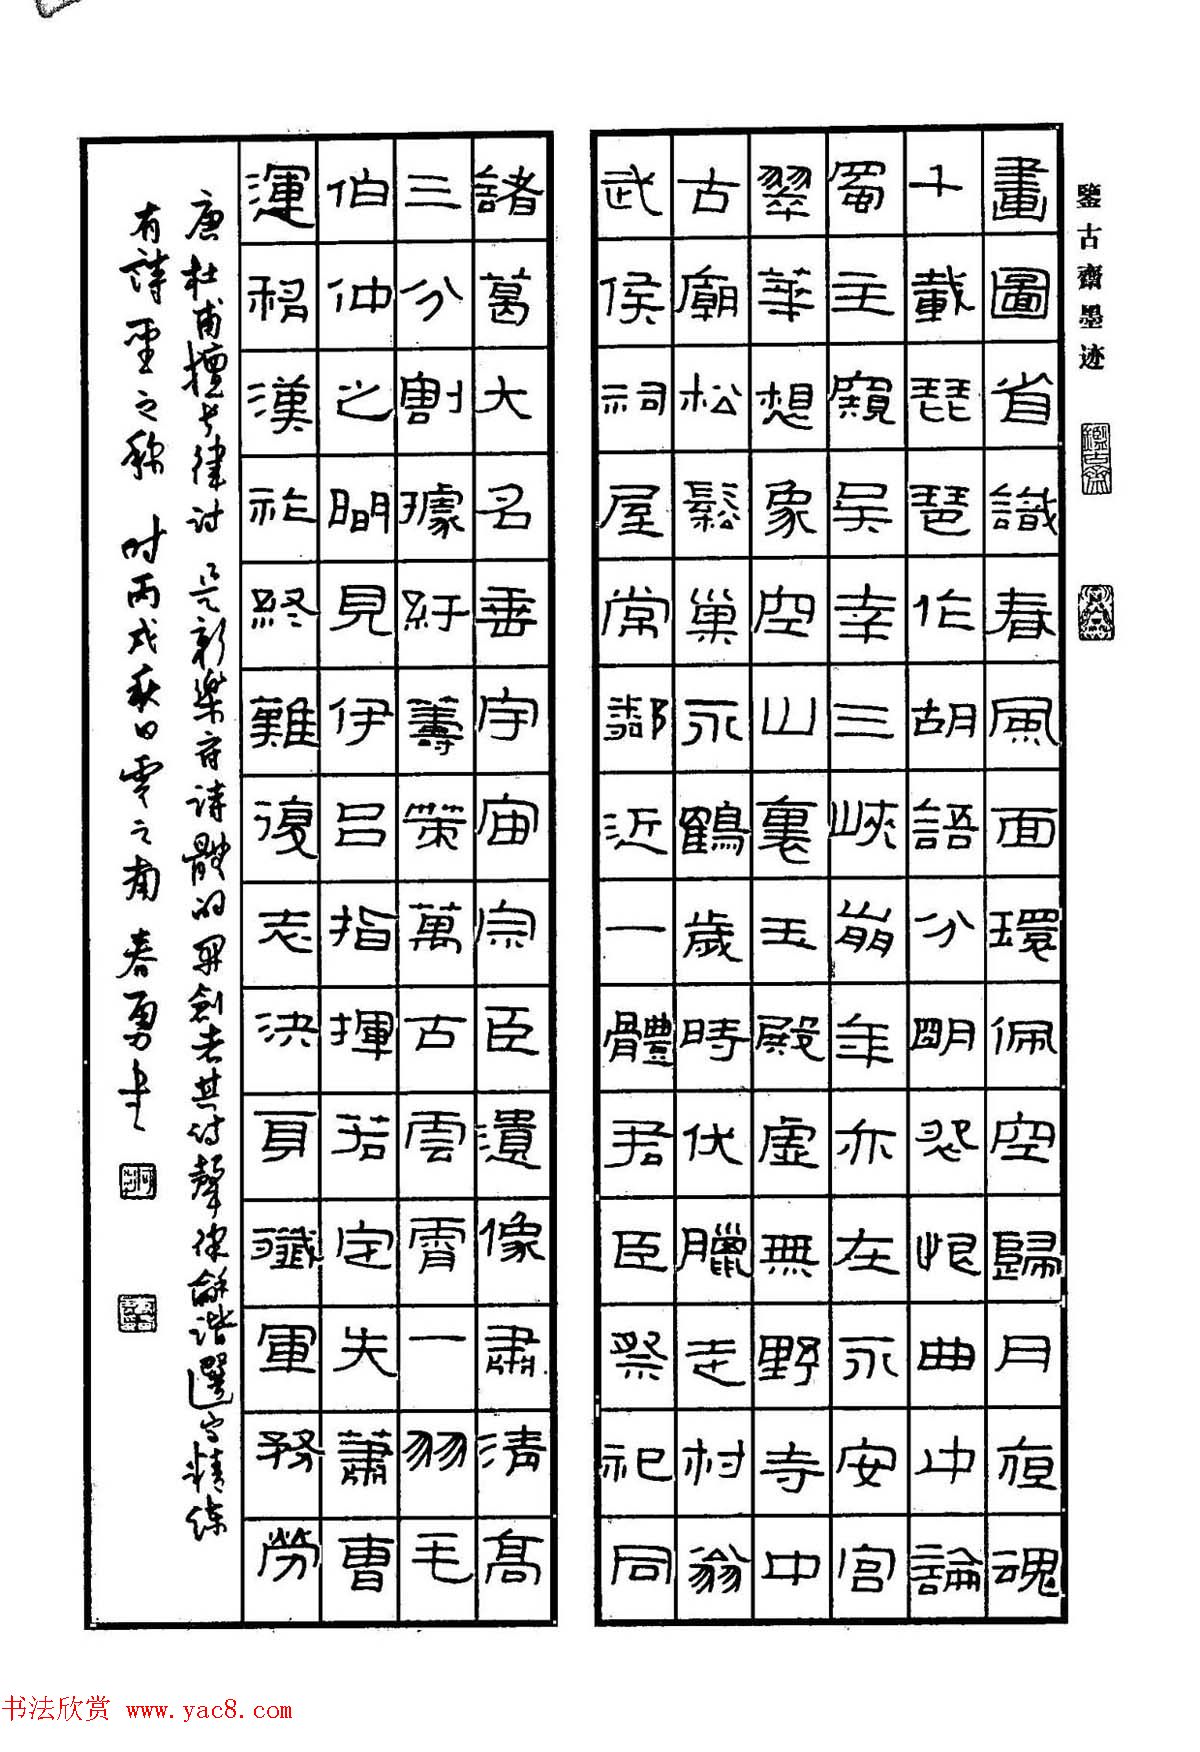 鑒古齋墨迹
畫圖省識春風面環佩空歸月夜魂
千載琵琶作胡語分明怨恨曲中論
蜀主窺吳幸三峽崩年亦在永安宮
翠華想象空山裏玉殿虛無野寺中
古廟松鬆巢永鶴歲時伏臘走村翁
武侯祠屋常鄰近一體君臣祭祀同
諸葛大名垂宇宙宗臣遺像肅清高
三分割據紆籌策萬古雲霄一羽毛
伯仲之間見伊呂指揮若定失蕭曹
運移漢祚終難復志決身殲軍務勞
唐杜甫擅長律詩 是新樂府詩體的開創者其詩聲律龢諧選字精練
有詩聖之稱 时丙戌秋日雩之南春勇書
书法欣赏 www.yac8.com